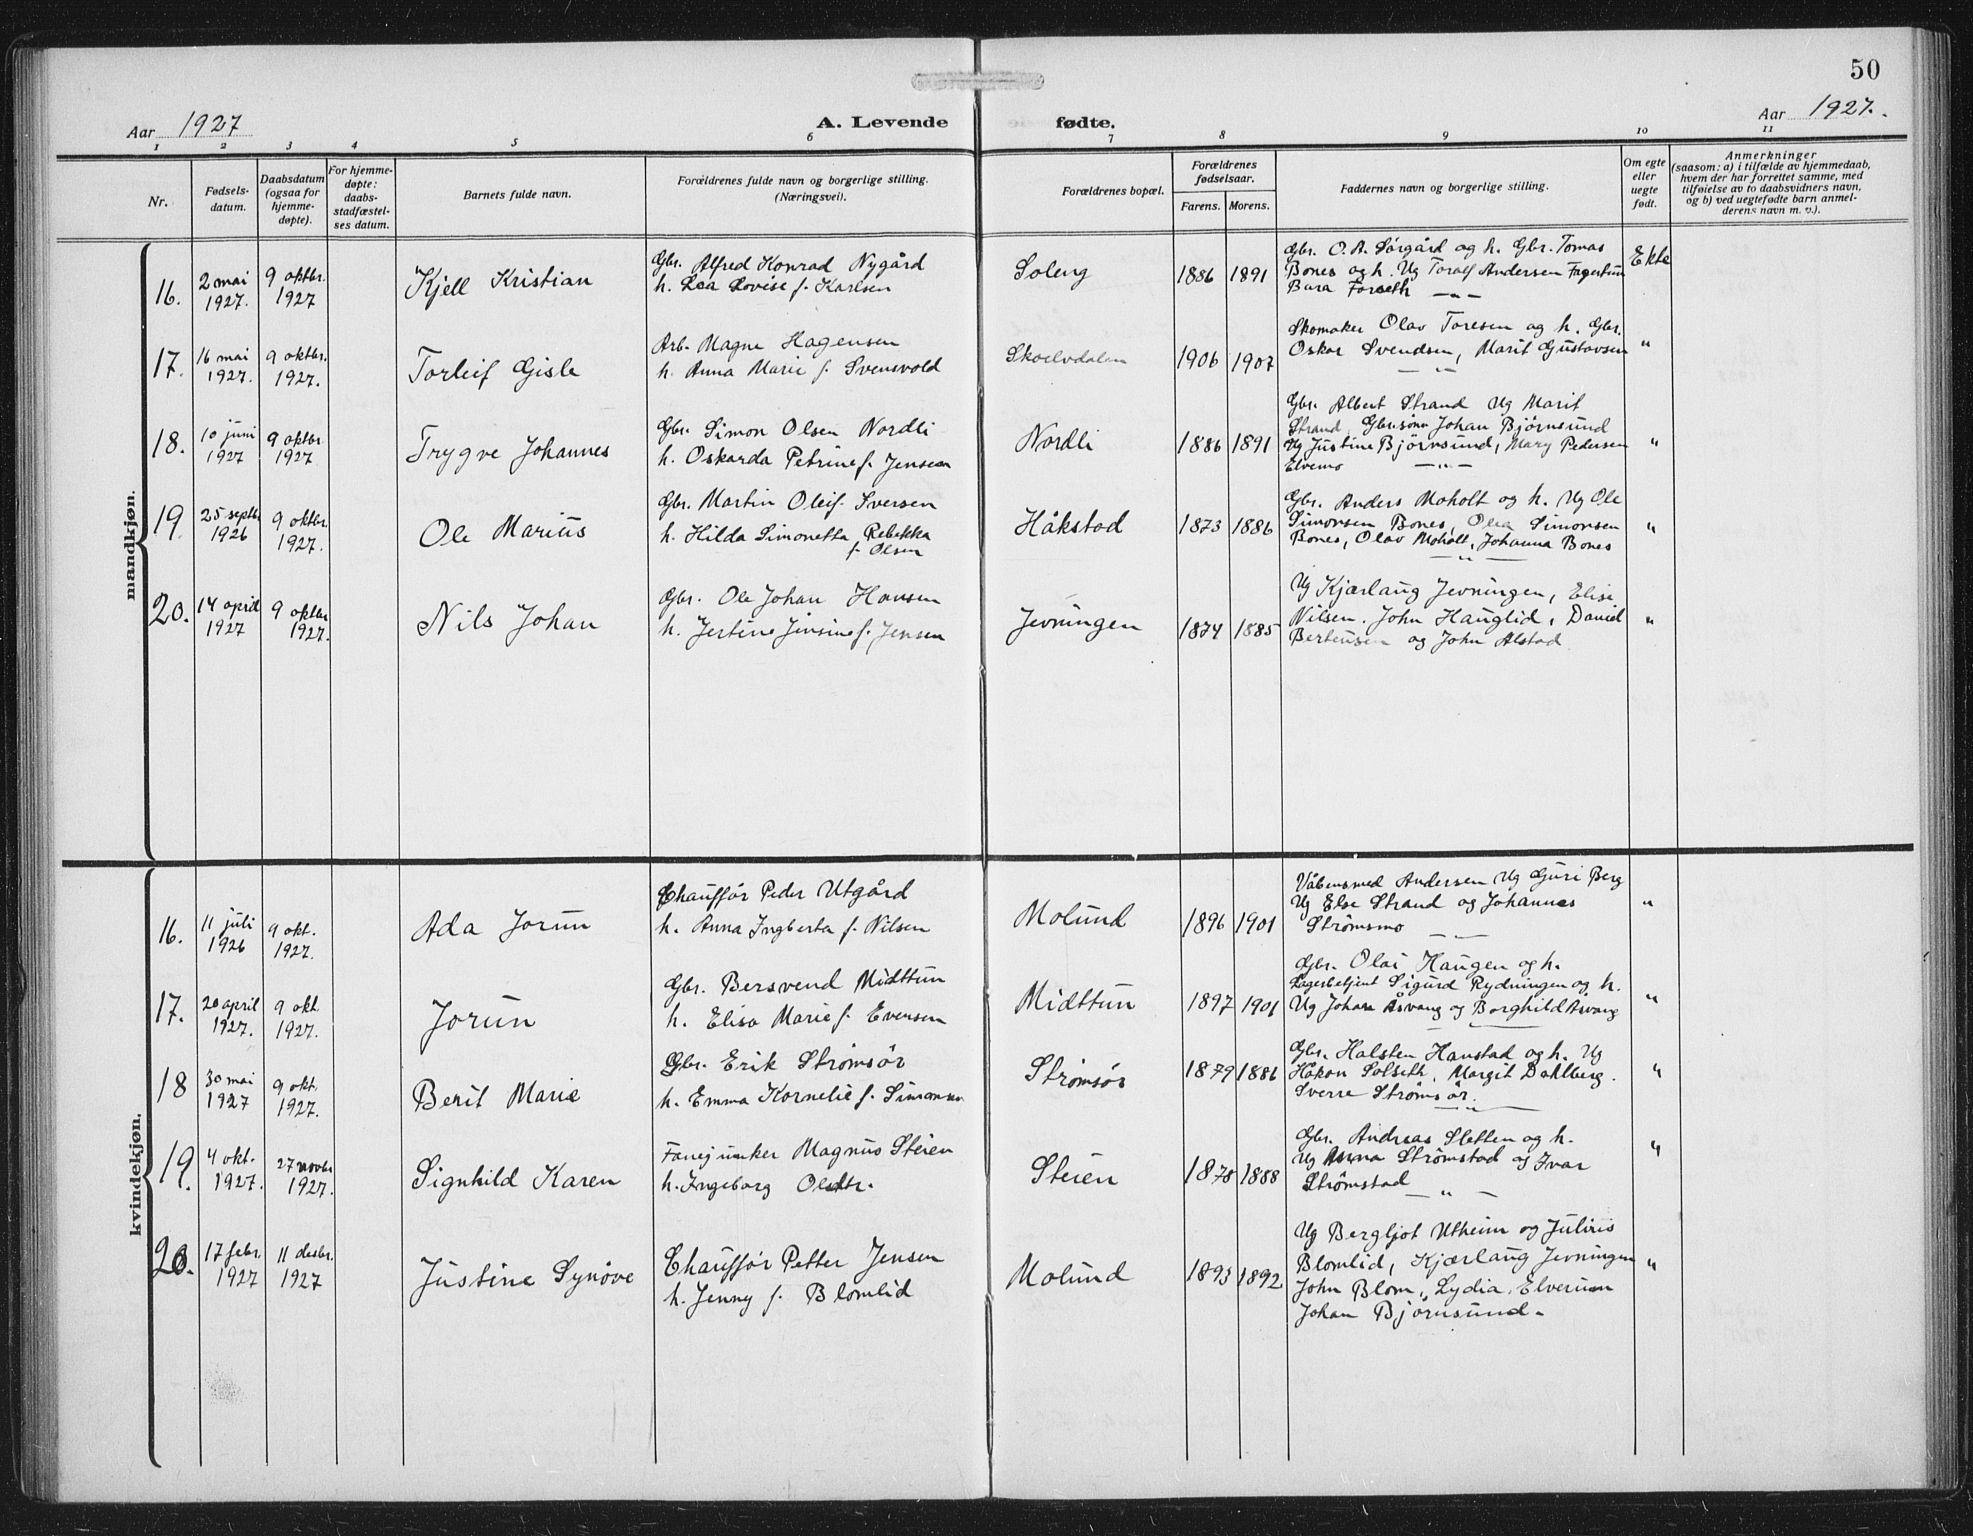 50
Aar 1927
A. Levende fødte.
Aar 1927.
1 2 3 4 5 6 7 8 9 10 11
Nr.
Fødsels-
datum.
Daabsdatum
(ogsaa for
hjemme-
døpte).
For hjemme-
døpte:
daabs-
stadfæstel-
ses datum.
Barnets fulde navn.
Forældrenes fulde navn og borgerlige stilling.
(Næringsvei).
Forældrenes bopæl.
Forældrenes
fødselsaar.
Farens. Morens.
Faddernes navn og borgerlige stilling.
Om egte
eller
uegte
født.
Anmerkninger
(saasom: a) i tilfælde av hjemmedaab,
hvem der har forrettet samme, med
tilføielse av to daabsvidners navn,
og b) ved uegtefødte barn anmel-
derens navn m. v.).
mandkjøn.
16.
2 mai
1927.
9 oktbr.
1927
Kjell Kristian
Gbr. Alfred Konrad Nygård
h. Lea Lovise f. Karlsen
Soleng
1886 1891
Gbr. O. A. Sørgård og h. Gbr. Tomas
Bones og h. Ug Toralf Andersen Fagertun
Bara Forseth — " —
Ekte
17.
16 mai
1927.
9 oktbr.
1927.
Torleif Gisle
Arb. Magne Hagensen
h. Anna Marie f. Svensvold
Skoelvdalen
1906 1907
Skomaker Olav Toresen og h. Gbr.
Oskar Svendsen, Marit Gustavsen
— " —
"
18.
10 juni
1927
9 oktbr
1927
Trygve Johannes
Gbr. Simon Olsen Nordli
h. Oskarda Petrine f. Jensen
Nordli
1886 1891
Gbr. Albert Strand Ug Marit
Strand, Gbr.sønn Johan Bjørnsund
Ug Justine Bjørnsund, Mary Pedersen
Elvemo — " —
"
19.
25 septbr
1926
9 oktbr.
1927.
Ole Marius
Gbr. Martin Oleif Iversen
h. Hilda Simonetta Rebekka
f. Olsen
Håkstad
1873 1886
Gbr. Anders Moholt og h. Ug Ole
Simonsen Bones, Olea Simonsen
Bones, Olav Moholt, Johanna Bones
— " —
"
20.
14 april
1927
9 oktbr
1927.
Nils Johan
Gbr. Ole Johan Hansen
h. Jertine Jensine f. Jensen
Jevningen
1874 1885
Ug Kjærlaug Jevningen, Elise
Nilsen. John Hauglid, David
Bertensen og John Alstad
"
kvindekjøn.
16.
11 juli
1926
9 okt.
1927.
Ada Jorun
Chauffør Peder Utgård
h. Anna Ingberta f. Nilsen
Molund
1896 1901
Våbensmed Andersen Ug Guri Berg
Ug Else Strand og Johannes
Strømsmo — " —
"
17.
20 april
1927.
9 okt
1927.
Jorun
Gbr. Bersvend Midttun
h. Elisa Marie f. Evensen
Midttun
1897 1901
Gbr. Olai Haugen og h.
Lagerbetjent Sigurd Rydningen og h.
Ug Johan Åsvang og Borghild Åsvang
— " —
"
18
30 mai
1927
9 okt.
1927.
Berit Marie
Gbr. Erik Strømsør
h. Emma Kornelie f. Simonsen
Strømsør
1879 1886
Gbr. Halsten Hanstad og h. Ug
Håkon Solseth, Margit Dahlberg.
Sverre Strømsør.
— " —
"
19.
4 okt.
1927.
27 novbr
1927.
Signhild Karen
Fanejunker Magnus Steien
h. Ingeborg Olsdtr.
Steien
1878 1888
Gbr. Andreas Sletten og h.
Ug Anna Strømstad og Ivar
Strømstad
— " —
"
20.
17 febr.
1927
11 desbr.
1927
Justine Synøve
Chauffør Petter Jensen
h. Jenny f. Blomlid
Molund
1893 1892
Ug Bergljot Utheim og Julius
Blomlid, Kjærlaug Jevningen
John Blom, Lydia Elverum
Johan Bjørnsund.
"